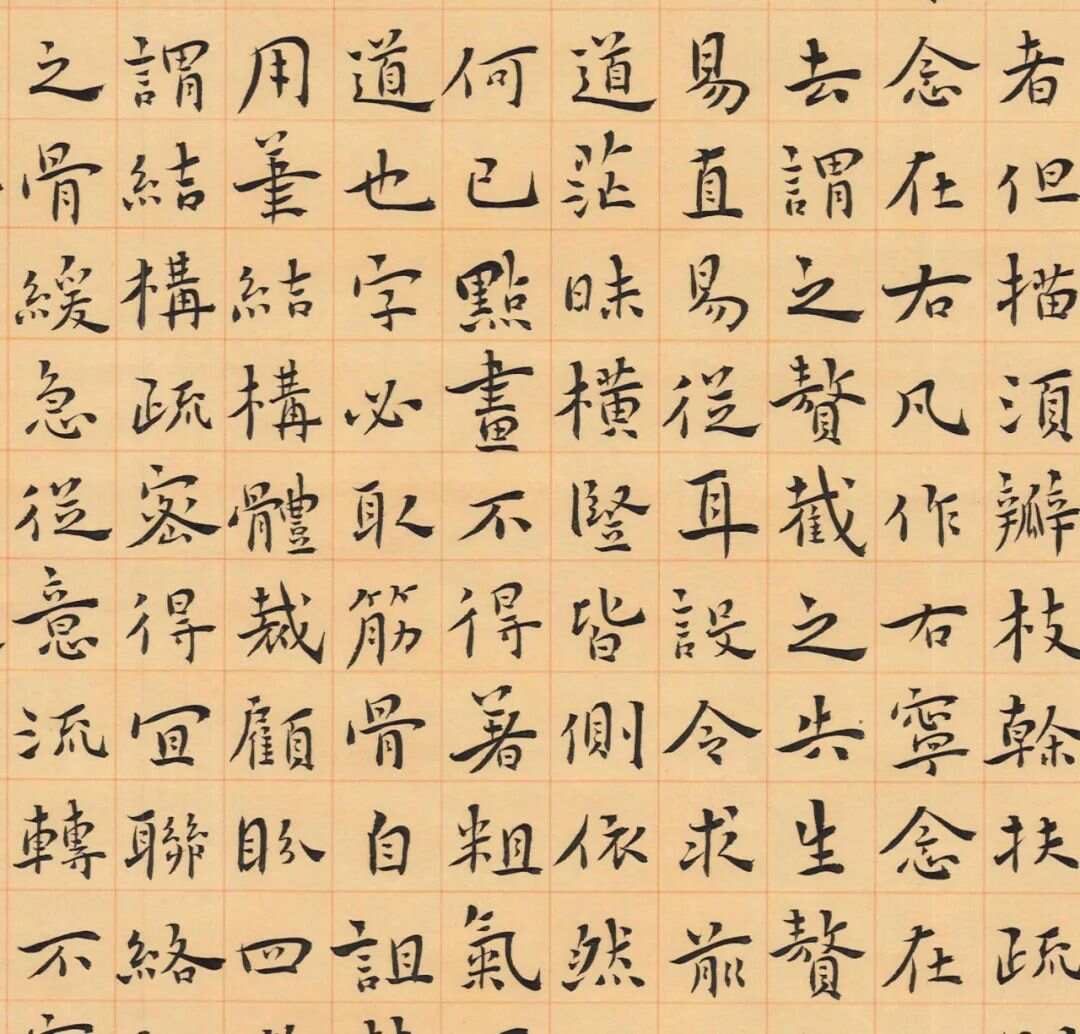 者但描須瓣枝榦扶疏
念在右凡作右寧念在
去謂之贅截之生贅
易直易從耳設令求前
道茫昧橫豎皆側依然
何已點畫不得著粗氣
道也字必取筋骨自詛
用筆結構體裁顧盼四
謂結構疏密得宜聯絡
之骨緩急從意流轉不